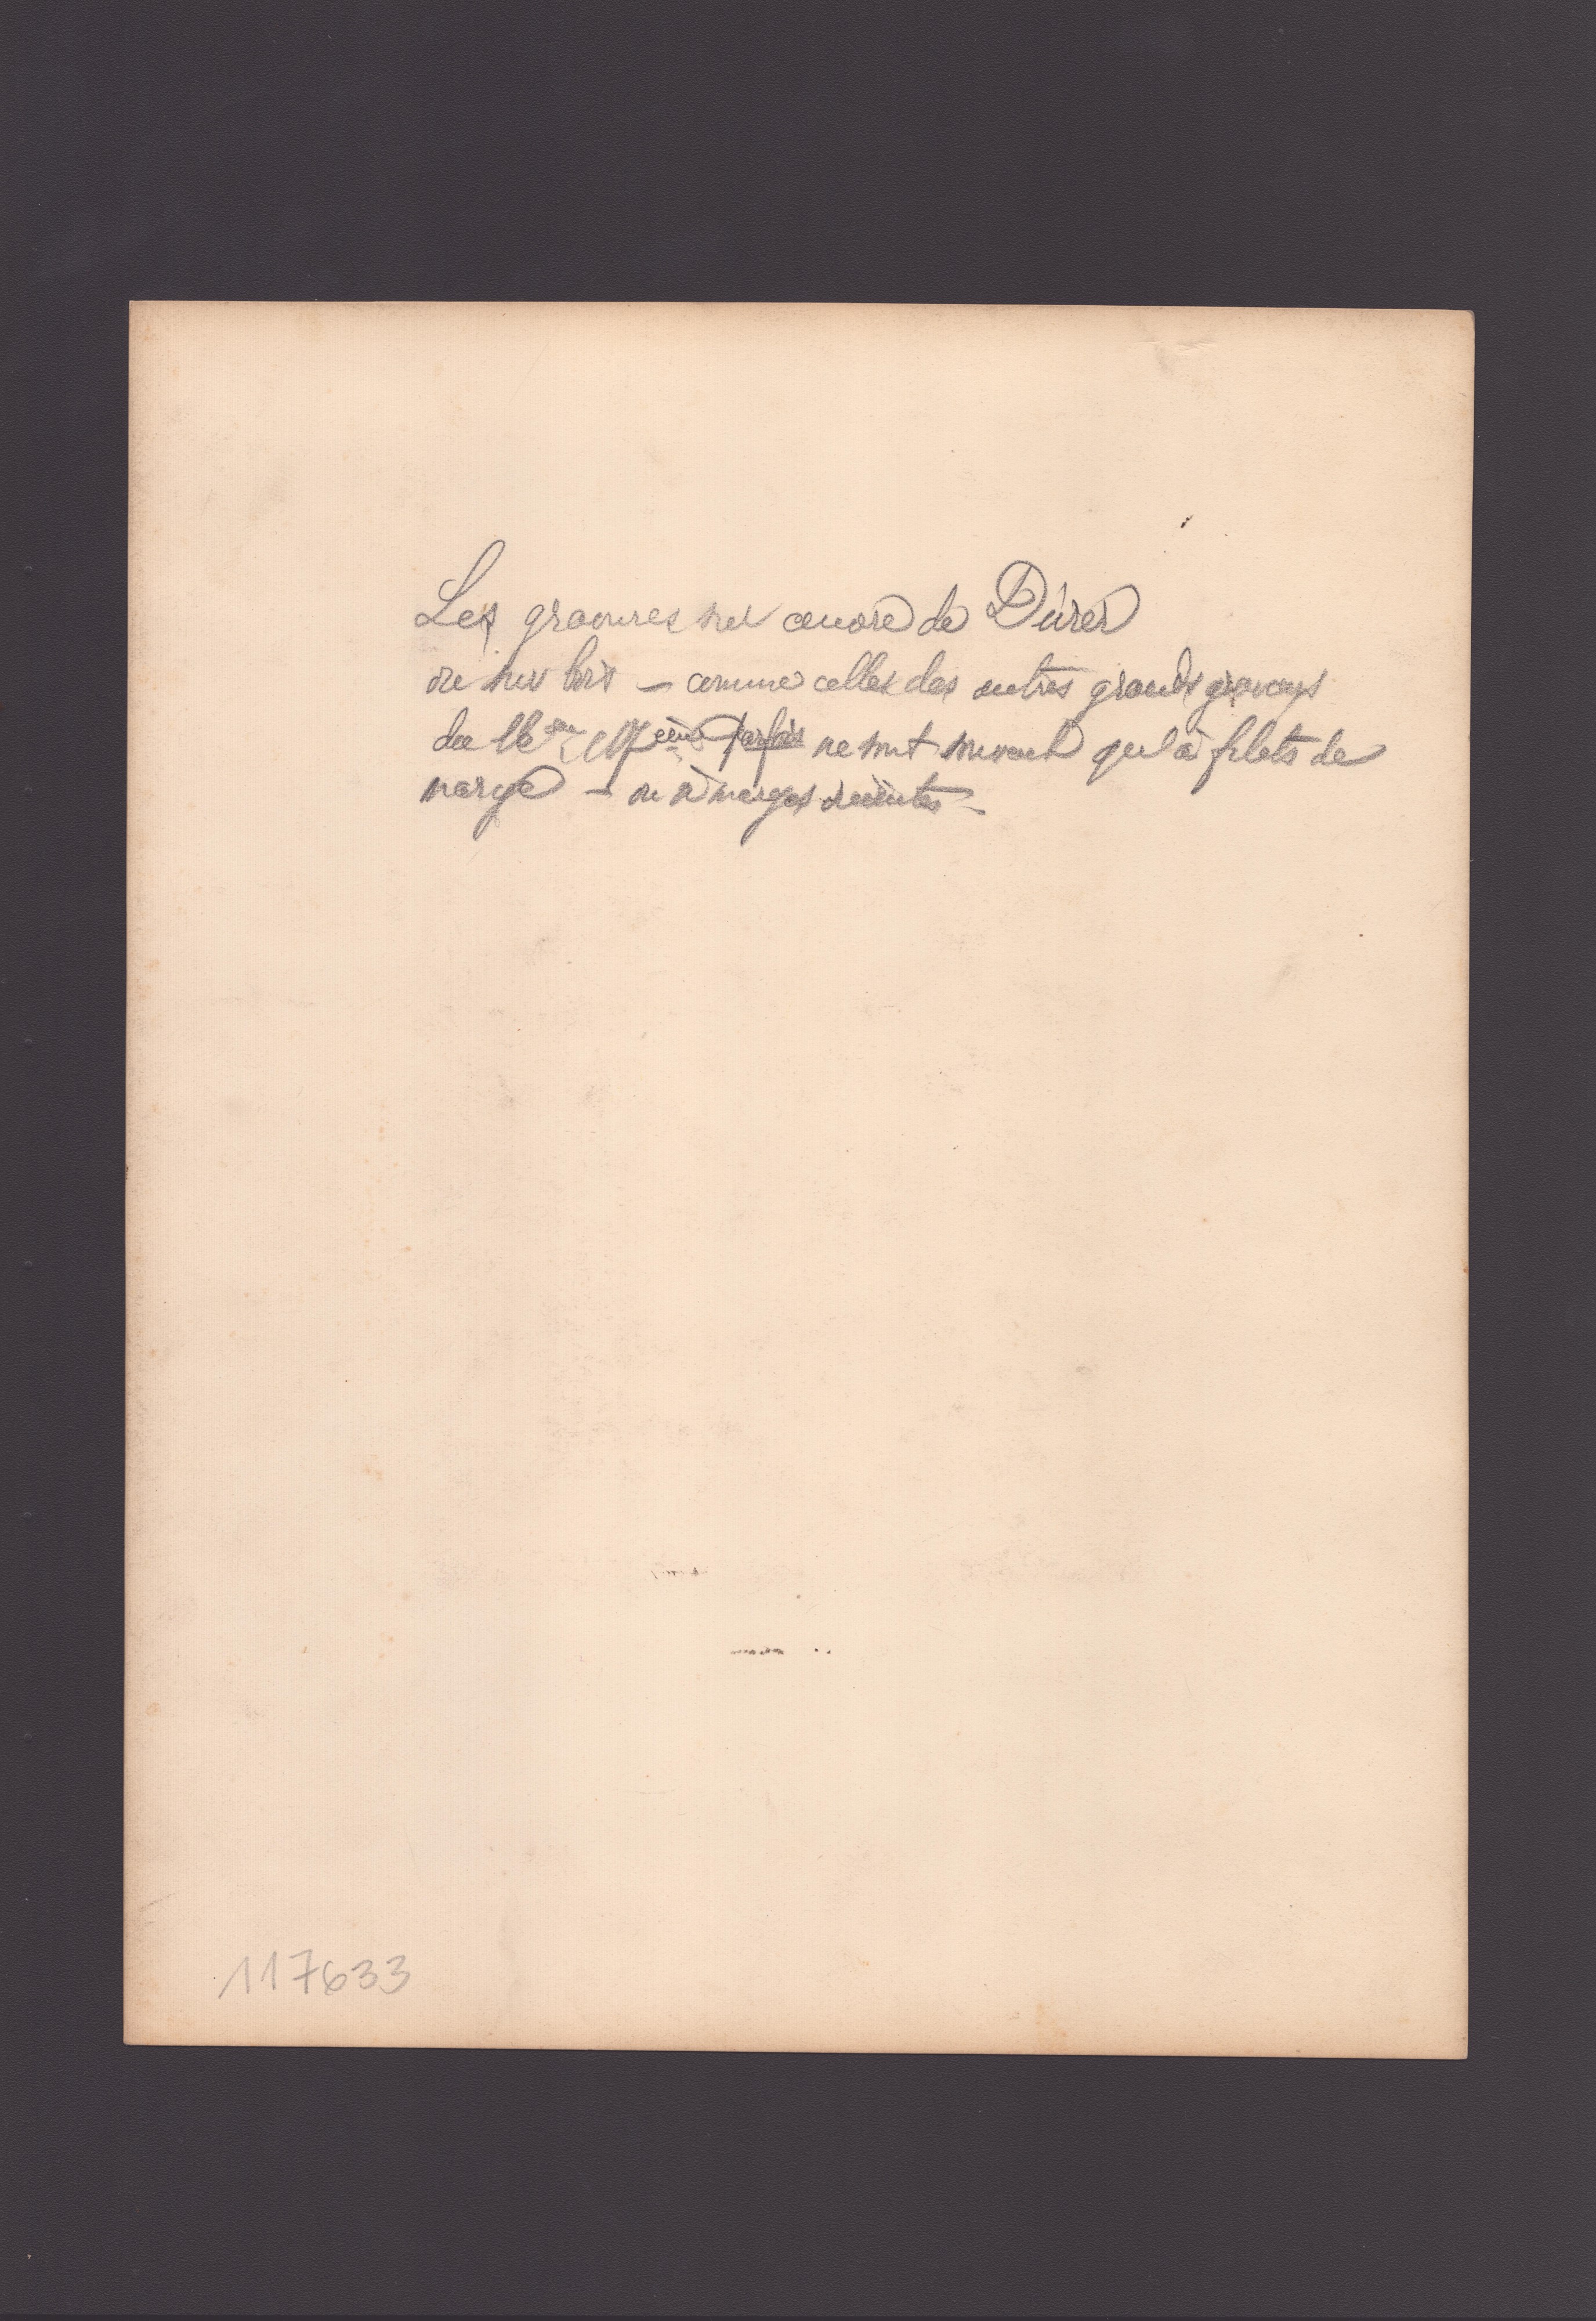 Les gravures sur cuivre de Dürer
ou sur bois – comme celles des autres grands graveurs
du 16ème 17ème parfois ne sont souvent qu'à filets de
marge – ou à marges réduites –
117633